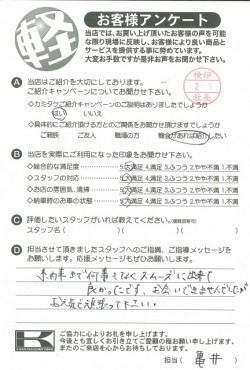 軽
お客様アンケート
当店では、お買い上げ頂いたお客様の声を可能
な限り現場に反映し、お客様により良い商品と
サービスを提供する事に努めています。
大変お手数ですが是非お声をお聞かせ下さい。
検印
社長
A 当店はご紹介を大切にしております。
ご紹介キャンペーンについてお聞かせ下さい。
◇カミタケよりご紹介キャンペーンのご説明はありましたでしょうか
はい いいえ
◇具体的にご紹介頂ける方とのご関係をお聞かせ頂けますでしょうか
ご親戚 ご友人 職場の方 機会があれば紹介したい
B 当店を実際にご利用になった印象をお聞かせ下さい。
◇総合的な満足度 5.大満足 4.満足 3.ふつう 2.やや不満 1.不満
◇スタッフの対応 5.大満足 4.満足 3.ふつう 2.やや不満 1.不満
◇お店の雰囲気、清掃 5.大満足 4.満足 3.ふつう 2.やや不満 1.不満
◇納車時のお車の状態 5.大満足 4.満足 3.ふつう 2.やや不満 1.不満
C 評価したいスタッフがいれば教えてください。(複数回答可)
スタッフ名( )( )( )
D 担当させて頂きましたスタッフへのご指摘、ご指導メッセージを
お願いします。応援メッセージもぜひお願いします。
納車まで何事もなくスムーズに出来て
良かったです、お会いできませんでしたが
お元気で頑張って下さい。
K
ご協力に心よりお礼を申し上げます。
今後とも宜しくお引き立てご愛顧の程お願い申し上げます。
またのご来店を心からお待ちしております。
担当( 亀井 )